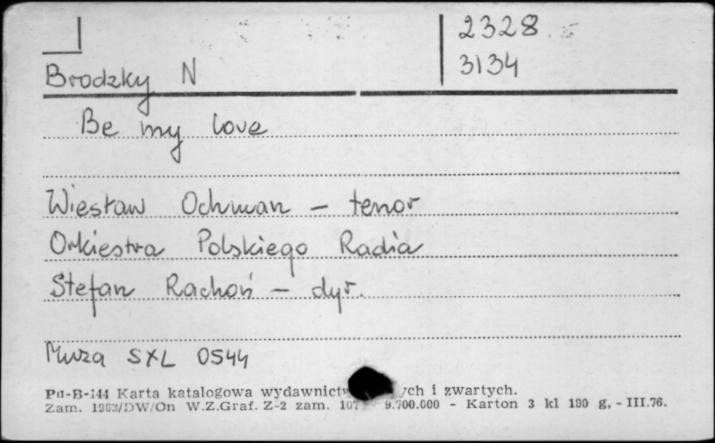 2328
3134
Brodzky N
Be my love
Wiesław Ochman - tenor
Orkiestra Polskiego Radia
Stefan Rachoń - dyr.
Muza SXL 0544
Pu-B-144 Karta katalogowa wydawnictw i zwartych.
Zam. 1963/DW/On W.Z.Graf. Z-2 zam. 9.700.000 - Karton 3 kl 180 g, - III.76.